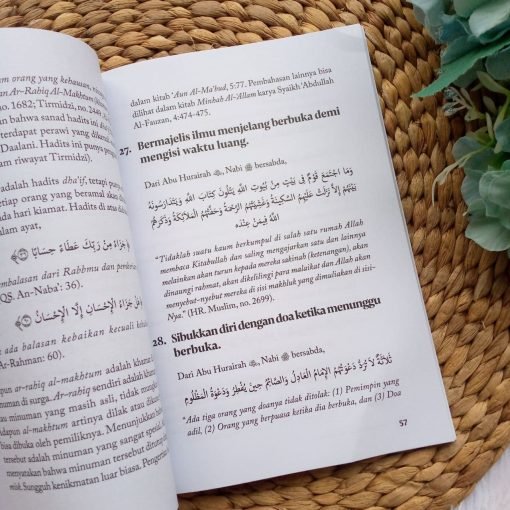 orang yang kehausan, niscaya
Ar-Rahiq Al-Makhtum (khamr
no. 1682; Tirmidzi, no.
bahwa sanad hadits ini dha'if
terdapat perawi yang dikenal
Daalani. Hadits ini punya penguat
riwayat Tirmidzi).
adalah hadits dha'if, tetapi punya
orang yang beramal akan dibalas
hari kiamat. Hadits di atas
ayat,
جَزَاءً مِنْ رَبِّكَ عَطَاءً حِسَابًا
pembalasan dari Rabbmu dan pemberian
(QS. An-Naba': 36).
هَلْ جَزَاءُ الْإِحْسَانِ إِلَّا الْإِحْسَانُ
ada balasan kebaikan kecuali kebaikan
Ar-Rahman: 60).
apun ar-rahiq al-makhtum adalah khamar
minuman di surga. Ar-rahiq sendiri adalah khamar
minuman yang masih asli, tidak
Adapun al-makhtum artinya dilak atau
bisa dibuka oleh pemiliknya. Menunjukkan bahwa
tersebut adalah minuman yang sangat spesial.
menyatakan bahwa minuman tersebut ditutup
misk. Sungguh kenikmatan luar biasa.
dalam kitab 'Aun Al-Ma'bud, 5:77. Pembahasan lainnya bisa
dilihat dalam kitab Minhah Al-Allam karya Syaikh 'Abdullah
Al-Fauzan, 4:474-475.
27. Bermajelis ilmu menjelang berbuka demi
mengisi waktu luang.
Dari Abu Hurairah ﷺ, Nabi ﷺ bersabda,
وَمَا اجْتَمَعَ قَوْمٌ فِى بَيْتٍ مِنْ بُيُوتِ اللَّهِ يَتْلُونَ كِتَابَ اللَّهِ وَيَتَدَارَسُونَهُ
بَيْنَهُمْ إِلاَّ نَزَلَتْ عَلَيْهِمُ السَّكِينَةُ وَغَشِيَتْهُمُ الرَّحْمَةُ وَحَفَّتْهُمُ الْمَلاَئِكَةُ وَذَكَرَهُمُ
اللَّهُ فِيمَنْ عِنْدَهُ
"Tidaklah suatu kaum berkumpul di salah satu rumah Allah
membaca Kitabullah dan saling mengajarkan satu dan lainnya
melainkan akan turun kepada mereka sakinah (ketenangan), akan
dinaungi rahmat, akan dikelilingi para malaikat dan Allah akan
menyebut-nyebut mereka di sisi makhluk yang dimuliakan di sisi-
Nya." (HR. Muslim, no. 2699).
28. Sibukkan diri dengan doa ketika menunggu
berbuka.
Dari Abu Hurairah ﷺ, Nabi ﷺ bersabda,
ثَلاَثَةٌ لاَ تُرَدُّ دَعْوَتُهُمُ الإِمَامُ الْعَادِلُ وَالصَّائِمُ حِينَ يُفْطِرُ وَدَعْوَةُ الْمَظْلُومِ
"Ada tiga orang yang doanya tidak ditolak: (1) Pemimpin yang
adil, (2) Orang yang berpuasa ketika dia berbuka, dan (3) Doa
57